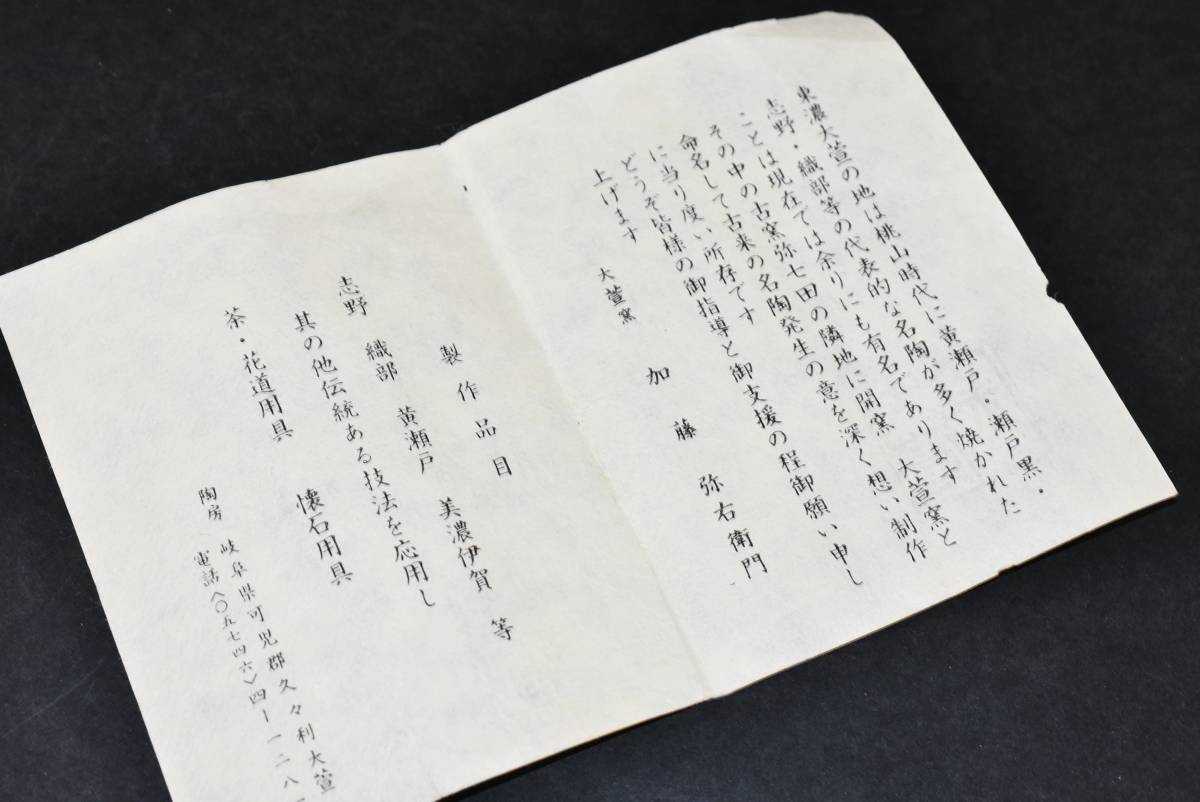 東濃大萱の地は桃山時代に黄瀬戸・瀬戸黒・
志野・織部等の代表的な名陶が多く焼かれた
ことは現在では余りにも有名であります
その中の古窯弥七田の隣地に開窯 大萱窯と
命名して古来の名陶発生の意を深く想い制作
に当り度い所存です
どうぞ皆様の御指導と御支援の程御願い申し
上げます
大萱窯 加藤弥右衛門
製作品目
志野 織部 黄瀬戸 美濃伊賀 等
其の他伝統ある技法を応用し
茶・花道用具 懐石用具
陶房 岐阜県可児郡久々利大萱
電話〈〇五七四六〉四ー一二八